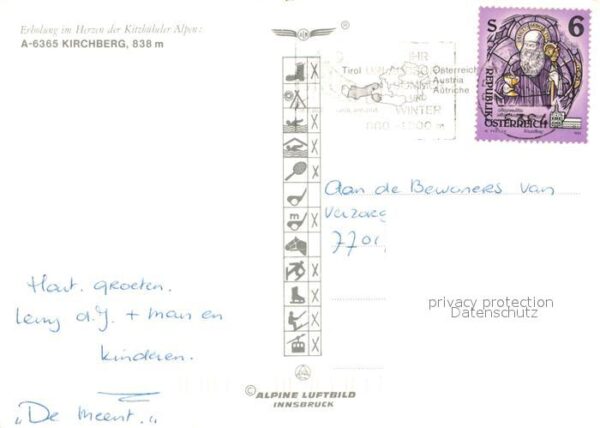 Erholung im Herzen der Kitzbüheler Alpen:
A-6365 KIRCHBERG, 838 m
Tirol
Österreich
Austria
Autriche
IHR
UND
WINTER
S 6
REPUBLIK
ÖSTERREICH
Aan de Bewoners van
Verzorg
770
Hart. groeten.
Leny d.J. + man en
kinderen.
"De Meent."
m
privacy protection
Datenschutz
© ALPINE LUFTBILD
INNSBRUCK